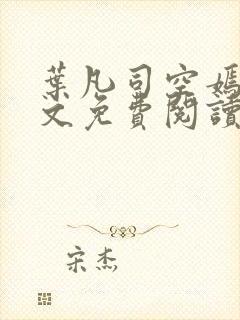 葉凡司空嫣
文免費閱讀
宋杰